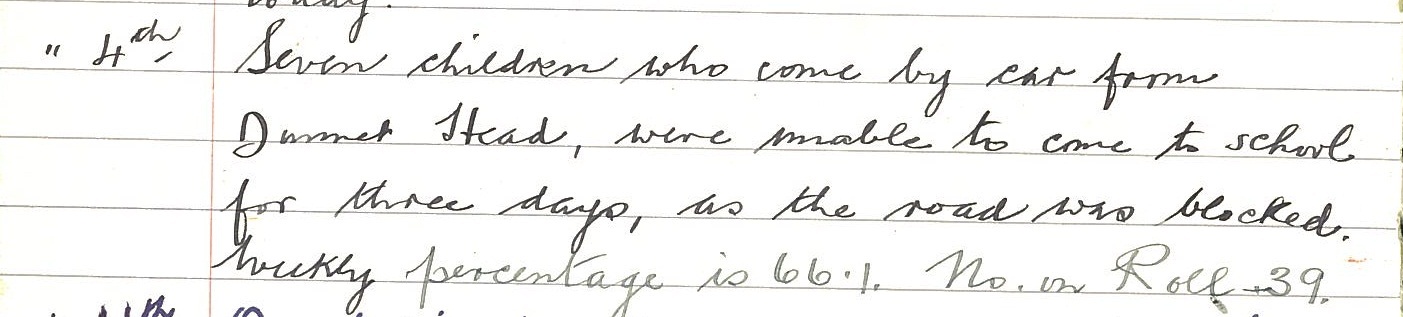 " 4th Seven children who come by car from
Dunnet Head, were unable to come to school
for three days, as the road was blocked.
Weekly percentage is 66.1. No. on Roll - 39.